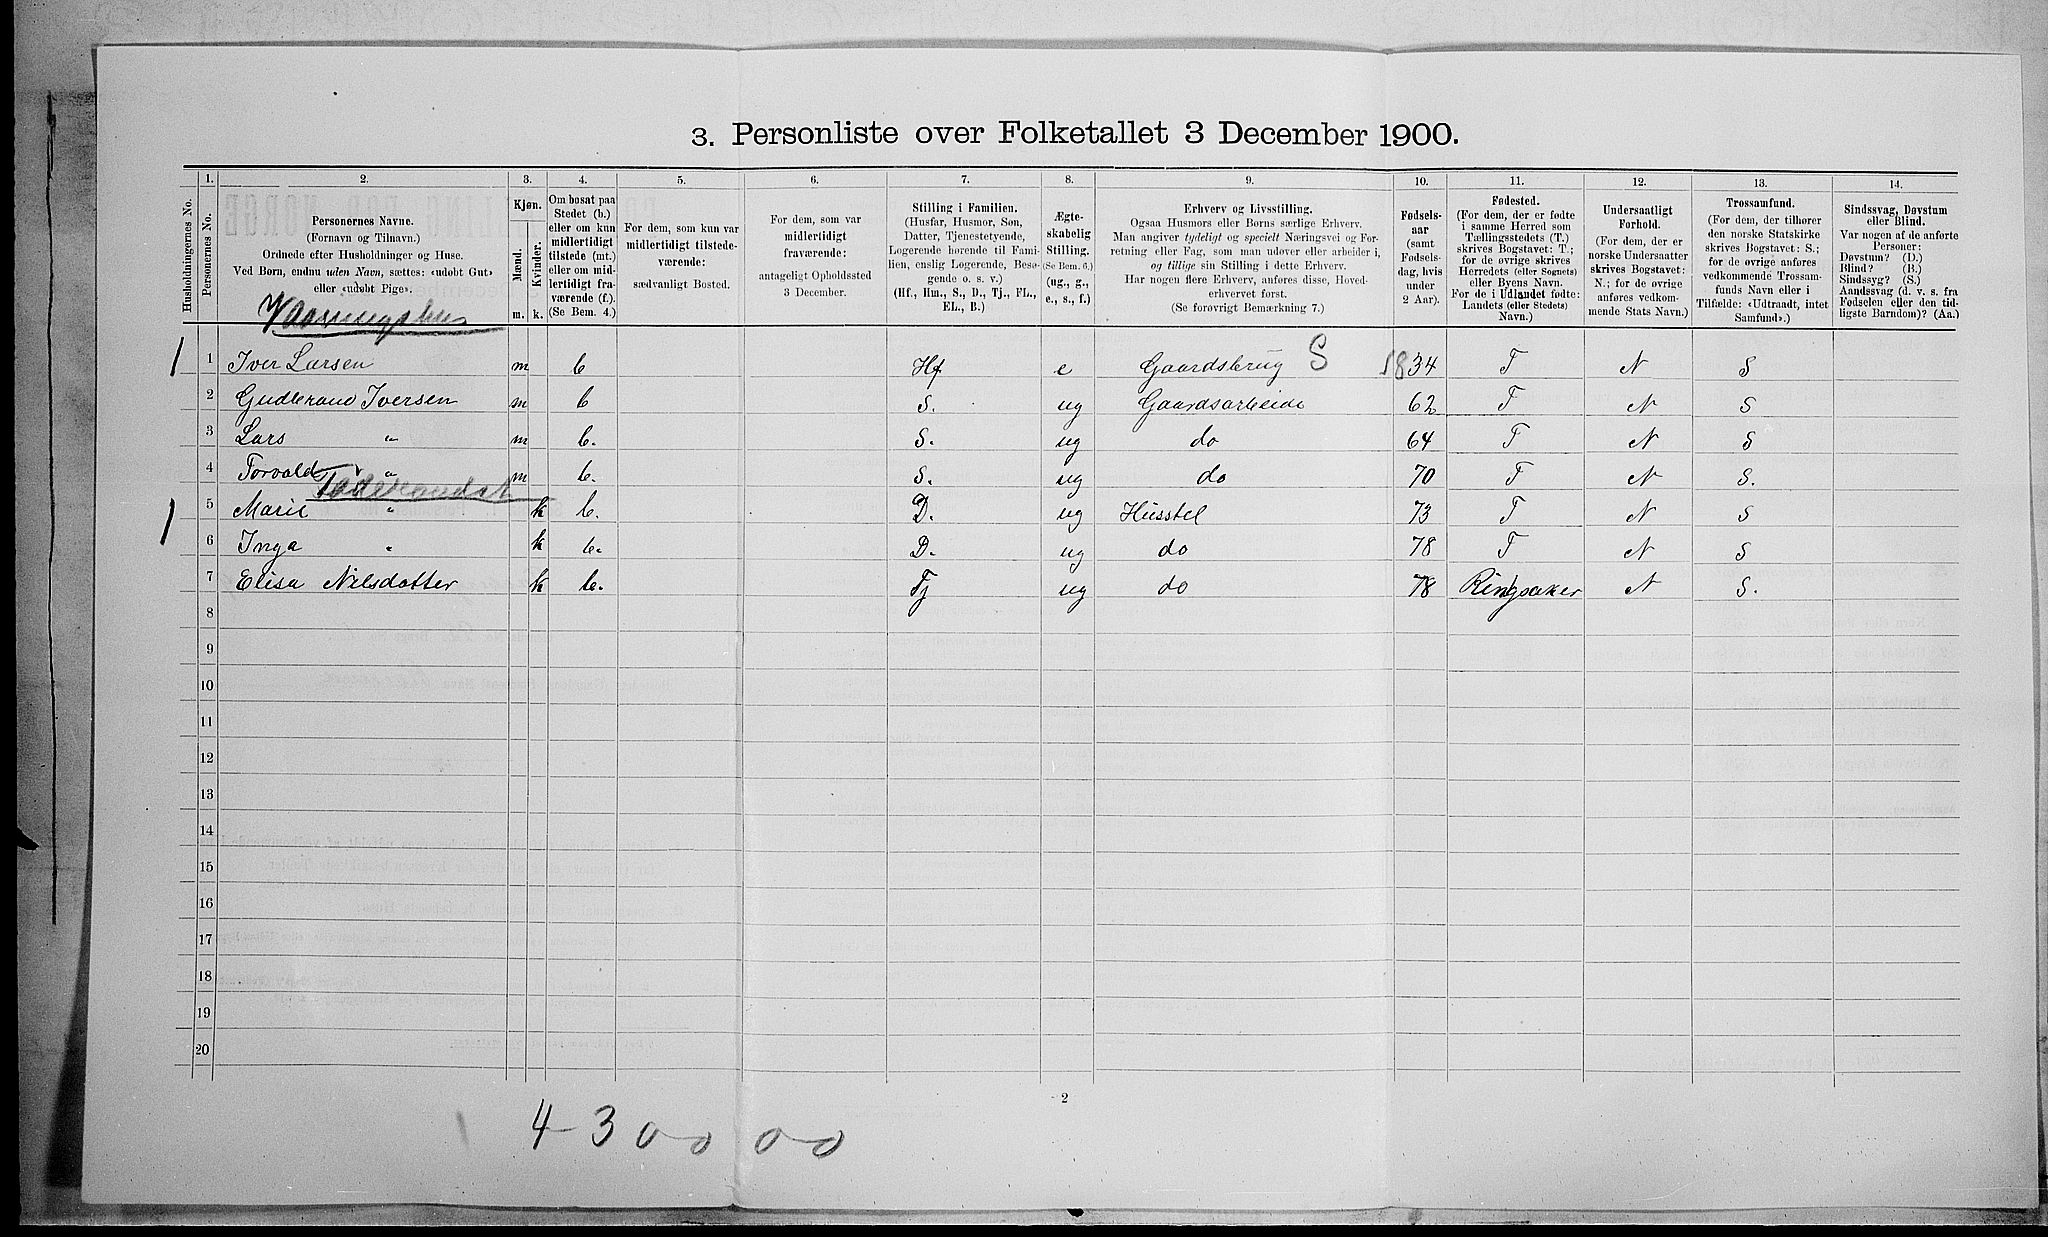 3. Personliste over Folketallet 3 December 1900.
Husholdningernes No.
1.
Personernes No.
2.
Personernes Navne.
(Fornavn og Tilnavn.)
Ordnede efter Husholdninger og Huse.
Ved Børn, endnu uden Navn, sættes: «udøbt Gut»
eller «udøbt Pige».
3.
Kjøn.
Mænd.
Kvinder.
m.
k.
4.
Om bosat paa
Stedet (b.)
eller om kun
midlertidigt
tilstede (mt.)
eller om mid-
lertidigt fra-
værende (f.).
(Se Bem. 4.)
5.
For dem, som kun var
midlertidigt tilstede-
værende:
sædvanligt Bosted.
6.
For dem, som var
midlertidigt
fraværende:
antageligt Opholdssted
3 December.
7.
Stilling i Familien.
(Husfar, Husmor, Søn,
Datter, Tjenestetyende,
Logerende hørende til Fami-
lien, enslig Logerende, Besø-
gende o. s. v.)
(Hf., Hm., S., D., Tj., FL.,
EL., B.)
8.
Ægte-
skabelig
Stilling.
(Se Bem. 6.)
(ug., g.,
e., s., f.)
9.
Erhverv og Livsstilling.
Ogsaa Husmors eller Børns særlige Erhverv.
Man angiver tydeligt og specielt Næringsvei og For-
retning eller Fag, som man udøver eller arbeider i,
og tillige sin Stilling i dette Erhverv.
Har nogen flere Erhverv, anføres disse, Hoved-
erhvervet først.
(Se forøvrigt Bemærkning 7.)
10.
Fødsels-
aar
(samt
Fødsels-
dag, hvis
under
2 Aar).
11.
Fødested.
(For dem, der er fødte
i samme Herred som
Tællingsstedets (T.)
skrives Bogstavet: T.;
for de øvrige skrives
Herredets (eller Sognets)
eller Byens Navn.
For de i Udlandet fødte:
Landets (eller Stedets)
Navn.)
12.
Undersaatligt
Forhold.
(For dem, der er
norske Undersaatter
skrives Bogstavet:
N.; for de øvrige
anføres vedkom-
mende Stats Navn.)
13.
Trossamfund.
(For dem, der tilhører
den norske Statskirke
skrives Bogstavet: S.;
for de øvrige anføres
vedkommende Trossam-
funds Navn eller i
Tilfælde: «Udtraadt, intet
Samfund».)
14.
Sindssvag, Døvstum
eller Blind.
Var nogen af de anførte
Personer:
Døvstum? (D.)
Blind? (B.)
Sindssyg? (S.)
Aandssvag (d. v. s. fra
Fødselen eller den tid-
ligste Barndom)? (Aa.)
1 1 Iver Larsen m b Hf e Gaardsbrug S 1834 T N S
2 Gudbrand Iversen m b S. ug Gaardsarbeide 62 T N S
3 Lars " m b. S. ug do 64 T N S
4 Torvald " m b. S. ug do 70 T N S.
1 5 Marie " k b. D. ug Husstel 73 T N S
6 Inga " k b. D. ug do 78 T N S
7 Elisa Nilsdatter k b. Tj ug do 78 Ringsaker N S.
8
9
10
11
12
13
14
15
16
17
18
19
20
2
4-3 0-0 0-0